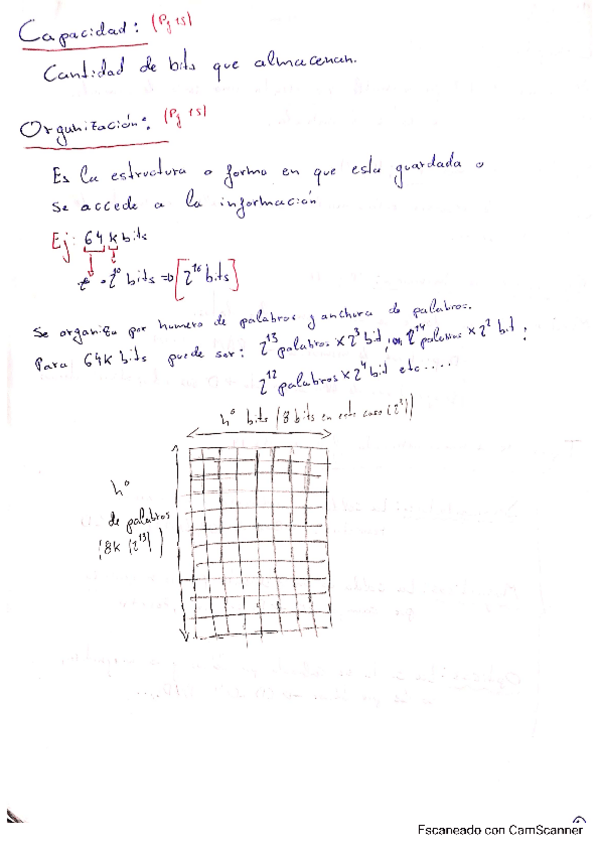 Capacidad: (Pg 15)
Cantidad de bits que almacenan.
Organización: (Pg 15)
Es la estructura o forma en que esta guardada o
se accede a la información
Ej: 64 k bits
2⁶ · 2¹⁰ bits => [2¹⁶ bits]
Se organiza por numero de palabras y anchura de palabras.
Para 64k bits puede ser: 2¹³ palabras x 2³ bit, 2¹⁴ palabras x 2² bit;
2¹² palabras x 2⁴ bit etc.....
nº bits (8 bits en este caso (2³))
nº
de palabras
(8k (2¹³))
Escaneado con CamScanner